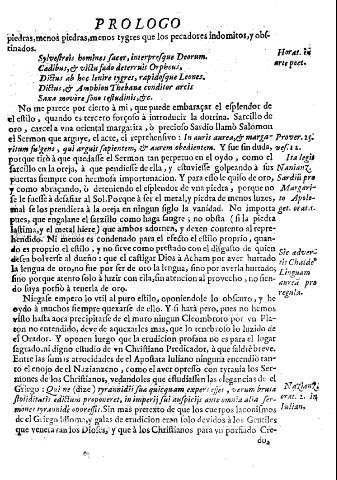 PROLOGO
piedras, menos piedras, menos tygres que los pecadores indomitos, y obs-
tinados.
Sylvestreis homines sacer, interpresque Deorum.
Cædibus, & victu fœdo deterruit Orpheus,
Dictus ab hoc lenire tygres, rapidosque Leones.
Dictus, & Amphion Thebanæ conditor arcis
Saxa movere sono testudinis, &c.
Horat. in
arte poet.
No me parece por cierto à mi, que puede embaraçar el esplendor de
el estilo, quando es tercero forçoso à introducir la dotrina. Sarcillo de
oro, carcel a vna oriental margarita, ò precioso Sardio llamò Salomon
el Sermon que arguye, el arte, el reprehensivo: In auris aurea, & marga-
ritum fulgens, qui arguit sapientem, & aurem obedientem. Y fue sin duda,
Prover. 25.
vers. 12.
porque tirò à que quedasse el Sermon tan perpetuo en el oydo, como el
sarcillo en la oreja, à que pendiesse de ella, y estuviesse golpeando à sus
puertas siempre con hermosa importunacion. Y para esso le quiso de oro,
y como abraçando, ò deteniendo el esplendor de vna piedra, porque no
se le fuesse à desafiar al Sol. Porque à ser el metal, y piedra de menos luzes,
mal se los prendiera à la oreja en ningun siglo la vanidad. No importa
Ita legit
Nazianz.
Sardiu pro
Margari-
to Apolo-
get. orat. 1.
pues, que engalane el sarcillo como haga sangre, no obsta (si la piedra
lastima, y el metal hiere) que ambos adornen, y dexen contento al repre-
hendido. Ni menos es condenado para el efecto el estilo proprio, quan-
do es proprio el estilo, y no sirve como prestado con el disgusto de quien
desea bolverse al dueño: que el castigar Dios à Acham por aver hurtado
la lengua de oro, no fue por ser de oro la lengua, sino por averla hurtado,
sino porque atento solo à luzir con ella, sin atencion al provecho, no sien-
do suya porfiò à tenerla de oro.
Sic advertit
Linguam
auream pro
regula.
Niegase empero lo vtil al puro estilo, oponiendole lo obscuro, y he
oydo à muchos siempre quexarse de ello. Y si harà pero, pues no hemos
visto hasta aora precipitarse de el muro ningun Cleombroto por vn Pla-
ton no entendido, deve de aquexarles mas, que lo tenebroso lo luzido de
el Orador. Y oponen luego que la erudicion profana no es para el lugar
sagrado, ni digno estudio de vn Christiano Predicador, à que saldrè breve.
Entre las sumas atrocidades de el Apostata Iuliano ninguna encendiò tan-
to el enojo de el Nazianzeno, como el aver opresso con tyrania los Ser-
mones de los Christianos, vedandoles que estudiassen las elegancias de el
Griego:
Nazianz.
orat. 2. in
Iulian.
Sin mas pretexto de que los cuerpos laconismos
de el Griego Idioma, y galas de erudicion eran solo devidos à los Gentiles
que veneran los Dioses, y que à los Christianos para vn porfiado Cre-